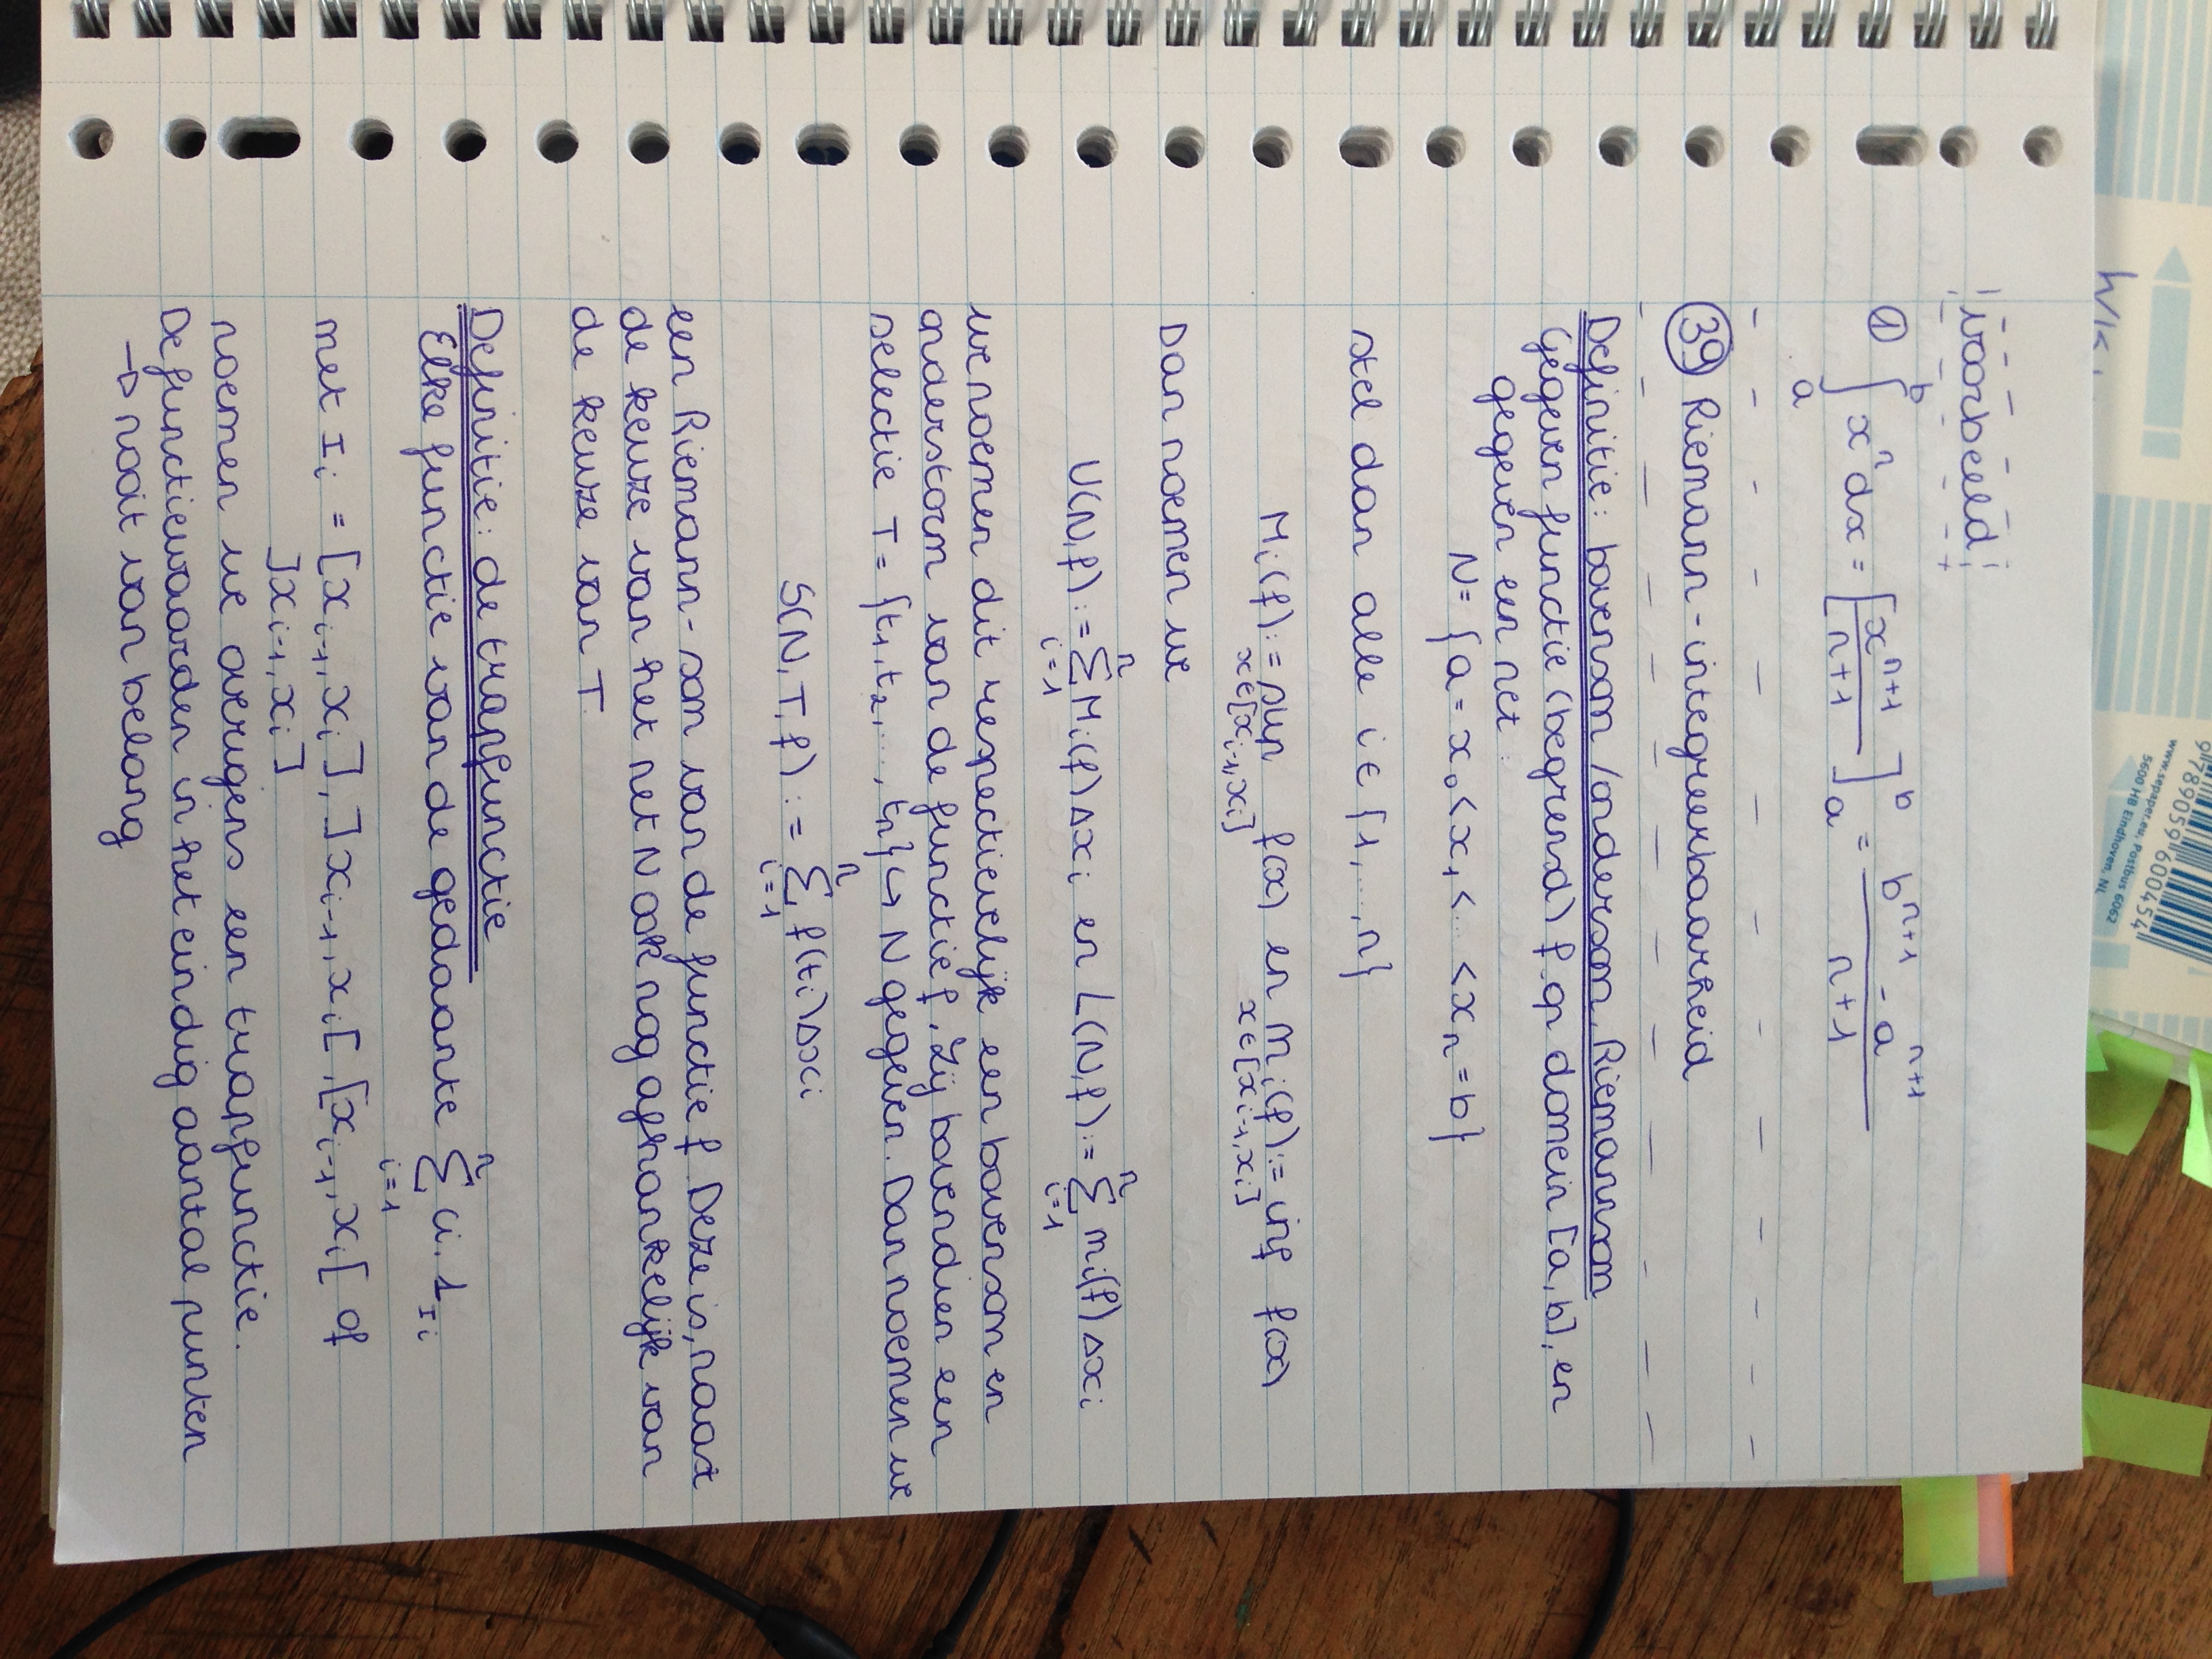 9 789059 600454
www.sepaper.eu, Postbus 6062
5600 HB Eindhoven, NL
voorbeeld
① ∫_a^b x^n dx = [x^{n+1}/(n+1)]_a^b = (b^{n+1} - a^{n+1})/(n+1)
39 Riemann-integreerbaarheid
Definitie: bovensom/ondersom, Riemannsom
Gegeven functie (begrensd) f op domein [a,b], en
gegeven een net:
N = {a = x_0 < x_1 < ... < x_n = b}
stel dan alle i ∈ {1,...,n}
M_i(f) := sup_{x∈[x_{i-1},x_i]} f(x) en m_i(f) := inf_{x∈[x_{i-1},x_i]} f(x)
Dan noemen we
U(N,f) := Σ_{i=1}^n M_i(f) Δx_i en L(N,f) := Σ_{i=1}^n m_i(f) Δx_i
we noemen dit respectievelijk een bovensom en
onderstom van de functie f. Zij bovendien een
selectie T = {t_1, t_2, ..., t_n} ↪ N gegeven. Dan noemen we
S(N,T,f) := Σ_{i=1}^n f(t_i) Δx_i
een Riemann-som van de functie f. Deze is, naast
de keuze van het net N ook nog afhankelijk van
de keuze van T.
Definitie: de trapfunctie
Elke functie van de gedaante Σ_{i=1}^n c_i . 1_{I_i}
met I_i = [x_{i-1}, x_i], ]x_{i-1}, x_i[, [x_{i-1}, x_i[ of
]x_{i-1}, x_i]
noemen we overigens een trapfunctie.
De functiewaarden in het eindig aantal punten
→ nooit van belang